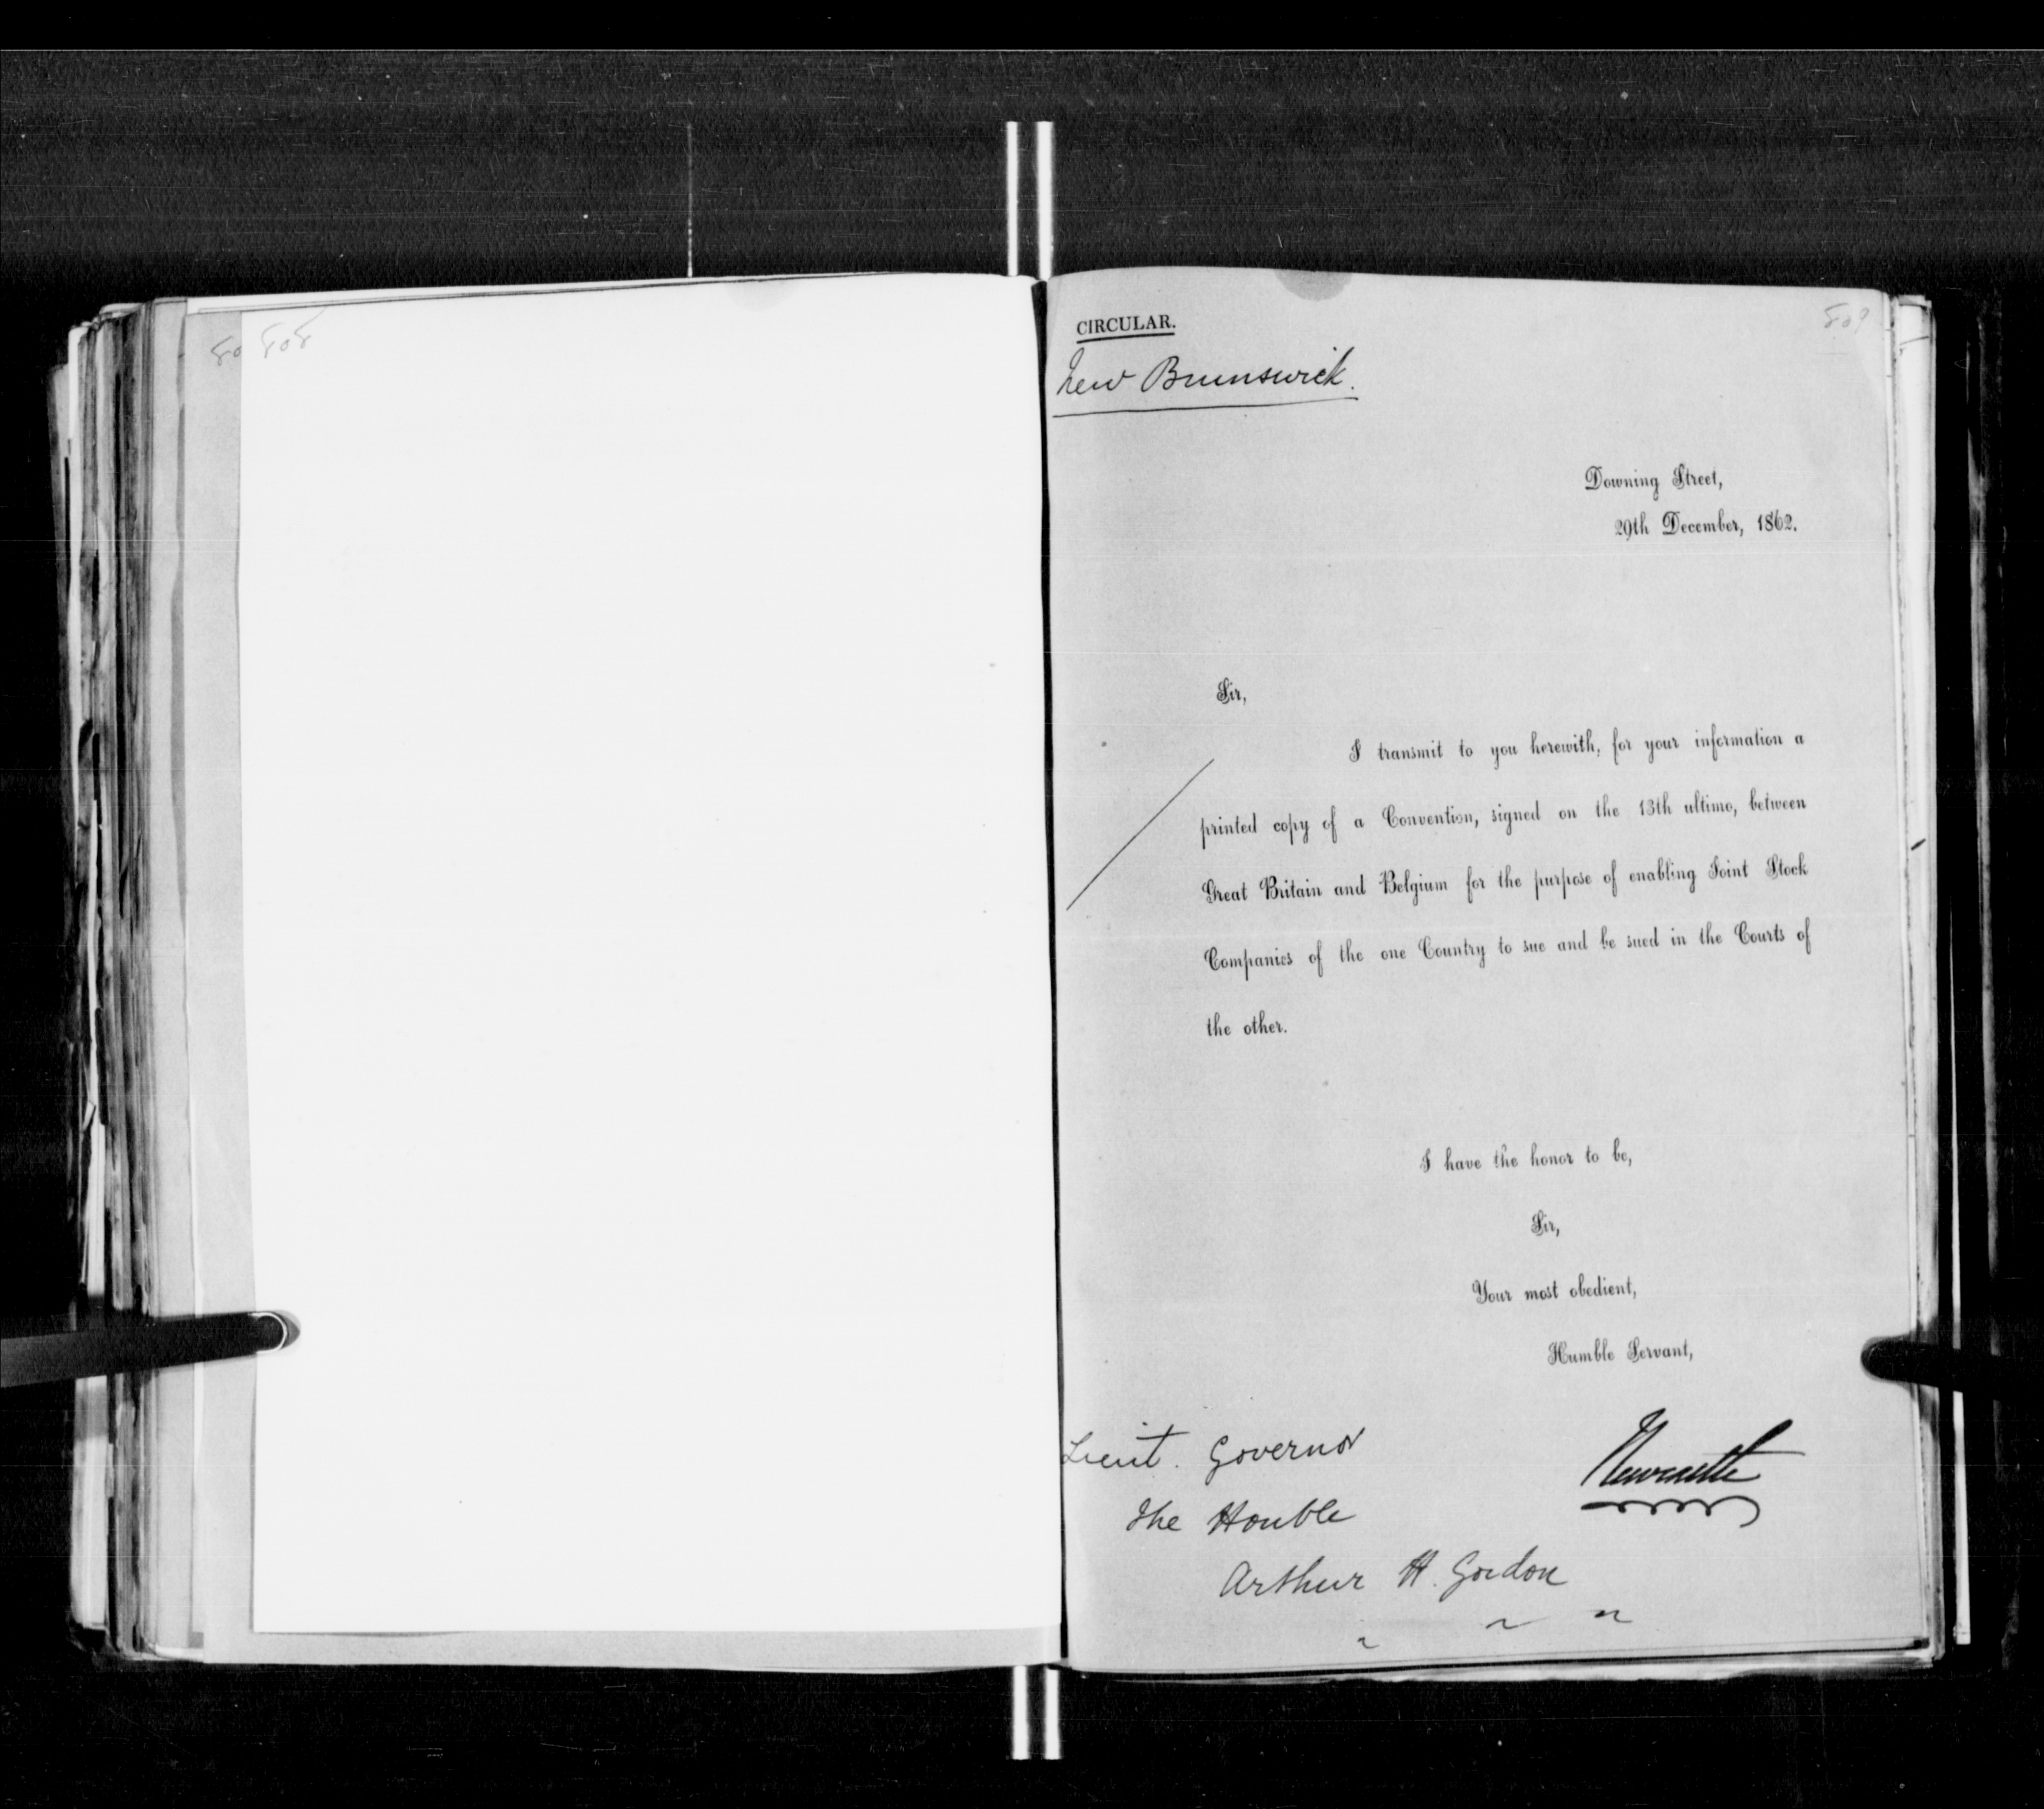 808
809
CIRCULAR.
New Brunswick.
Downing Street,
29th December, 1862.
Sir,
I transmit to you herewith, for your information a
printed copy of a Convention, signed on the 13th ultimo, between
Great Britain and Belgium for the purpose of enabling Joint Stock
Companies of the one Country to sue and be sued in the Courts of
the other.
I have the honor to be,
Sir,
Your most obedient,
Humble Servant,
Newcastle
Lieut. Governor
The Honble
Arthur H. Gordon